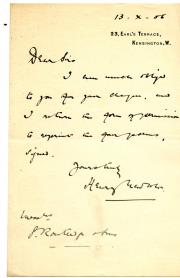 13 - X - 06
23, EARL'S TERRACE,
KENSINGTON, W.
Dear Sir
I am much obliged
to you for your cheque, and
I return the form of permission
to reprint the four poems,
signed.
Yours truly
Henry Newbolt